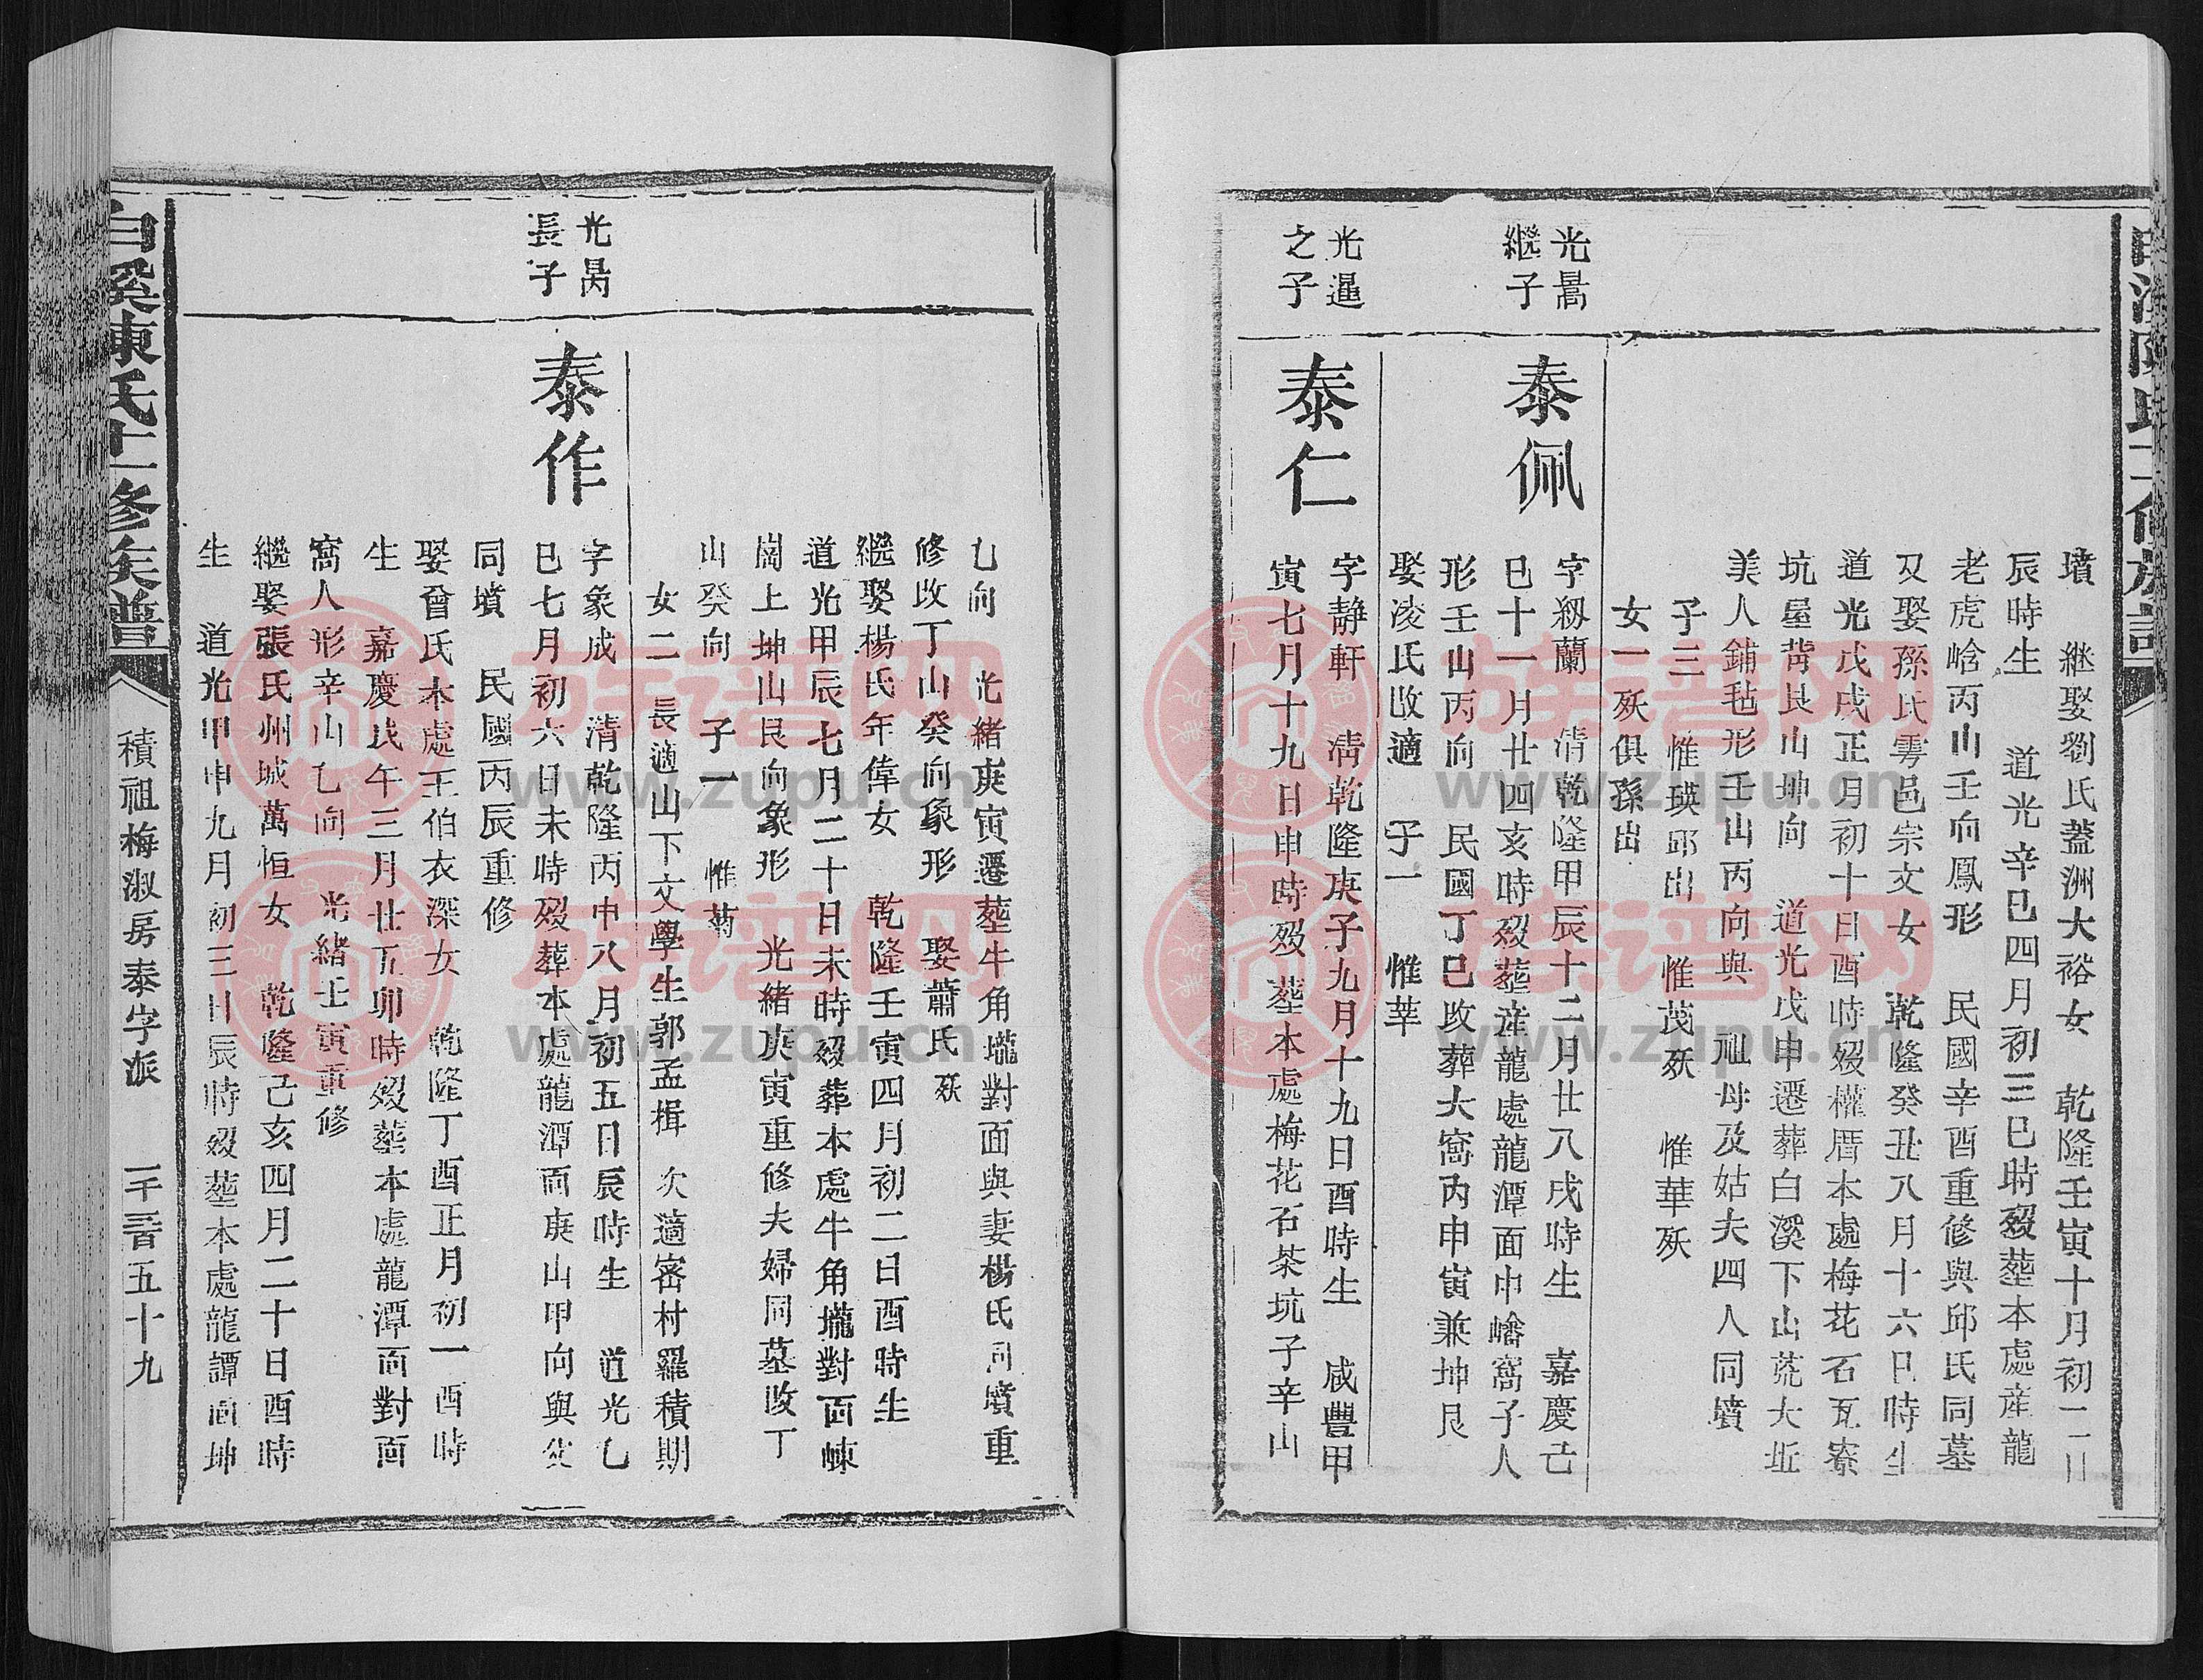 墳　继娶劉氏蓋洲大裕女　乾隆壬寅十月初二日
辰時生　道光辛巳四月初三巳時歿塟本處産龍
老虎峆丙山壬向鳳形　民國辛酉重修與邱氏同墓
又娶孫氏雩邑宗文女　乾隆癸丑八月十六巳時生
道光戊戌正月初十日酉時歿權厝本處梅花石瓦寮
坑屋背艮山坤向　道光戊申遷葬白溪下山莞大坵
美人鋪毡形壬山丙向與　祖母及姑夫四人同墳
子三　惟瑛邱出　惟茂殀　惟華殀
女一殀俱孫出
光暠
繼子
泰佩
字紉蘭　清乾隆甲辰十二月廿八戌時生　嘉慶己
巳十一月廿四亥時歿塟産龍處龍潭面中嶒窩子人
形壬山丙向　民國丁巳改葬大窩內申寅兼坤艮
娶凌氏改適　子一　惟莘
光暹
之子
泰仁
字靜軒　清乾隆庚子九月十九日酉時生　咸豐甲
寅七月十九日申時歿　塟本處梅花石茶坑子辛山
乙向　光緒庚寅遷塟牛角壠對面與妻楊氏同墳重
修改丁山癸向象形　娶蕭氏殀
繼娶楊氏年偉女　乾隆壬寅四月初二日酉時生
道光甲辰七月二十日未時歿葬本處牛角壠對面崠
崗上坤山艮向象形　光緒庚寅重修夫婦同墓改丁
山癸向　子一　惟菊
女二　長適山下文學生郭孟揖　次適峉村羅積期
光昺
長子
泰作
字象成　清乾隆丙申八月初五日辰時生　道光乙
巳七月初六日未時歿葬本處龍潭面庚山甲向與父
同墳　民國丙辰重修
娶曾氏本處王伯衣深女　乾隆丁酉正月初一酉時
生　嘉慶戊午三月廿五卯時歿塟本處龍潭面對面
窩人形辛山乙向　光緒壬寅重修
繼娶張氏州城萬恒女　乾隆己亥四月二十日酉時
生　道光甲申九月初三日辰時歿塟本處龍譚面坤
白溪陳氏十一修族譜　積祖梅淑房泰字派　一千三百五十九
族谱网
www.zupu.cn
族谱网
www.zupu.cn
族谱网
www.zupu.cn
族谱网
www.zupu.cn